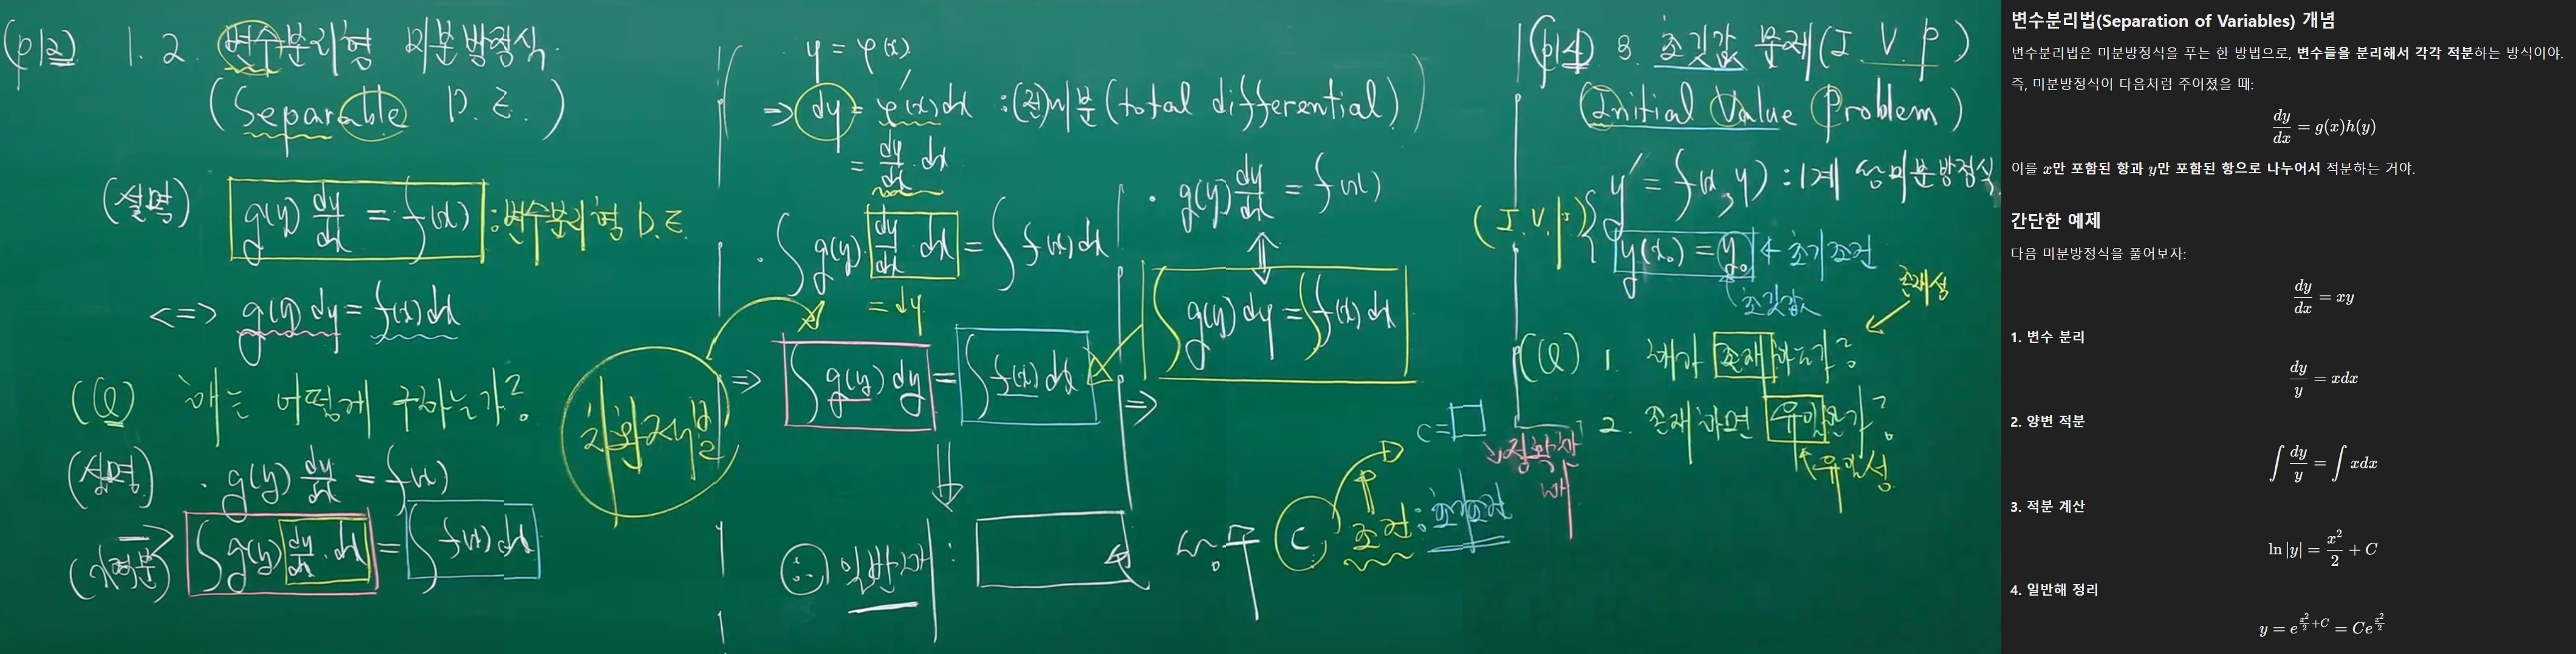 (p12) 1.2. 변수분리형 미분방정식
(Separable D.E.)
(설명) g(y) dy/dx = f(x) : 변수분리형 D.E.
<=> g(y) dy = f(x) dx
(Q) 해는 어떻게 구하는가?
(설명) · g(y) dy/dx = f(x)
=> ∫ g(y) dy/dx · dx = ∫ f(x) dx
치환적분
y = φ(x)
=> dy = φ'(x) dx : (전)미분 (total differential)
= dy/dx · dx
· ∫ g(y) · dy/dx · dx = ∫ f(x) dx
= dy
=> ∫ g(y) dy = ∫ f(x) dx =>
∴ 일반해 :
· g(y) dy/dx = f(x)
⇕
∫ g(y) dy = ∫ f(x) dx
C 조건 : 초기조건
C = □
(p14) 3. 초깃값 문제 (I.V.P)
(Initial Value Problem)
(I.V.P) y' = f(x, y) : 1계 상미분방정식
y(x₀) = y₀ ← 초기조건
초깃값
존재성
(Q) 1. 해가 존재하는가?
2. 존재하면 유일한가?
유일성
변수분리법(Separation of Variables) 개념
변수분리법은 미분방정식을 푸는 한 방법으로, 변수들을 분리해서 각각 적분하는 방식이야.
즉, 미분방정식이 다음처럼 주어졌을 때:
dy/dx = g(x)h(y)
이를 x만 포함된 항과 y만 포함된 항으로 나누어서 적분하는 거야.
간단한 예제
다음 미분방정식을 풀어보자:
dy/dx = xy
1. 변수 분리
dy/y = xdx
2. 양변 적분
∫ dy/y = ∫ xdx
3. 적분 계산
ln |y| = x²/2 + C
4. 일반해 정리
y = e^(x²/2 + C) = Ce^(x²/2)